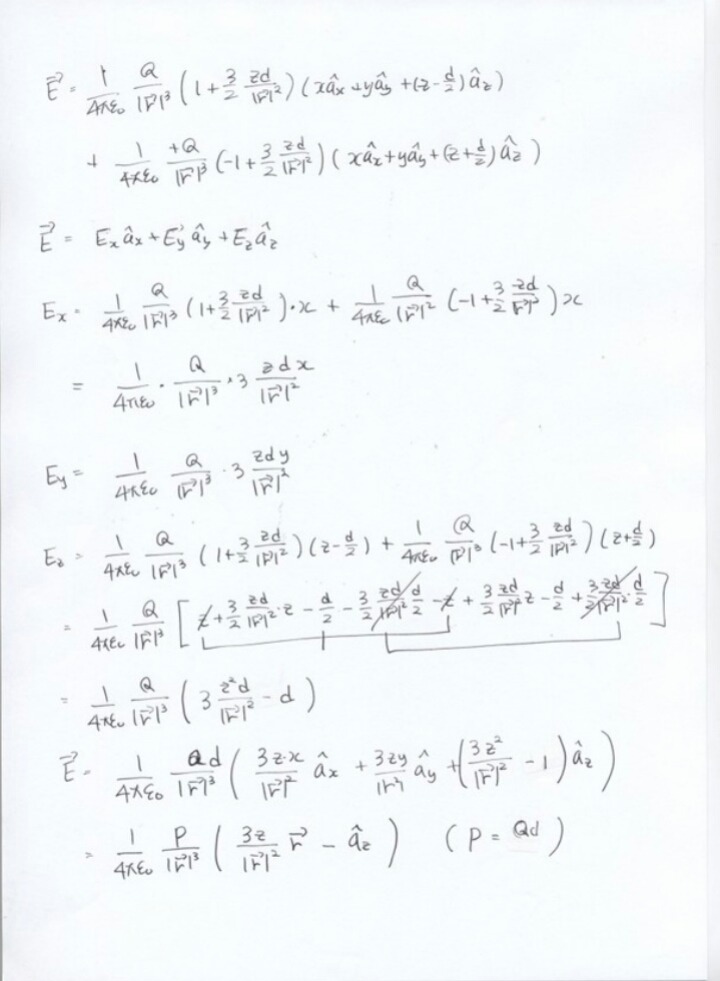 \vec{E} = \frac{1}{4\pi\epsilon_0} \frac{Q}{|\vec{r}|^3} (1 + \frac{3}{2} \frac{zd}{|\vec{r}|^2}) (x\hat{a}_x + y\hat{a}_y + (z - \frac{d}{2}) \hat{a}_z)
+ \frac{1}{4\pi\epsilon_0} \frac{+Q}{|\vec{r}|^3} (-1 + \frac{3}{2} \frac{zd}{|\vec{r}|^2}) (x\hat{a}_x + y\hat{a}_y + (z + \frac{d}{2}) \hat{a}_z)
\vec{E} = E_x \hat{a}_x + E_y \hat{a}_y + E_z \hat{a}_z
E_x = \frac{1}{4\pi\epsilon_0} \frac{Q}{|\vec{r}|^3} (1 + \frac{3}{2} \frac{zd}{|\vec{r}|^2}) \cdot x + \frac{1}{4\pi\epsilon_0} \frac{Q}{|\vec{r}|^2} (-1 + \frac{3}{2} \frac{zd}{|\vec{r}|^2}) x
= \frac{1}{4\pi\epsilon_0} \cdot \frac{Q}{|\vec{r}|^3} \cdot 3 \frac{zdx}{|\vec{r}|^2}
E_y = \frac{1}{4\pi\epsilon_0} \frac{Q}{|\vec{r}|^3} \cdot 3 \frac{zdy}{|\vec{r}|^2}
E_z = \frac{1}{4\pi\epsilon_0} \frac{Q}{|\vec{r}|^3} (1 + \frac{3}{2} \frac{zd}{|\vec{r}|^2}) (z - \frac{d}{2}) + \frac{1}{4\pi\epsilon_0} \frac{Q}{|\vec{r}|^3} (-1 + \frac{3}{2} \frac{zd}{|\vec{r}|^2}) (z + \frac{d}{2})
= \frac{1}{4\pi\epsilon_0} \frac{Q}{|\vec{r}|^3} [z + \frac{3}{2} \frac{zd}{|\vec{r}|^2} \cdot z - \frac{d}{2} - \frac{3}{2} \frac{zd}{|\vec{r}|^2} \frac{d}{2} - z + \frac{3}{2} \frac{zd}{|\vec{r}|^2} z - \frac{d}{2} + \frac{3}{2} \frac{zd}{|\vec{r}|^2} \cdot \frac{d}{2}]
= \frac{1}{4\pi\epsilon_0} \frac{Q}{|\vec{r}|^3} (3 \frac{z^2 d}{|\vec{r}|^2} - d)
\vec{E} = \frac{1}{4\pi\epsilon_0} \frac{Qd}{|\vec{r}|^3} (\frac{3z \cdot x}{|\vec{r}|^2} \hat{a}_x + \frac{3zy}{|\vec{r}|^2} \hat{a}_y + (\frac{3z^2}{|\vec{r}|^2} - 1) \hat{a}_z)
= \frac{1}{4\pi\epsilon_0} \frac{P}{|\vec{r}|^3} (\frac{3z}{|\vec{r}|^2} \vec{r} - \hat{a}_z) (P = Qd)